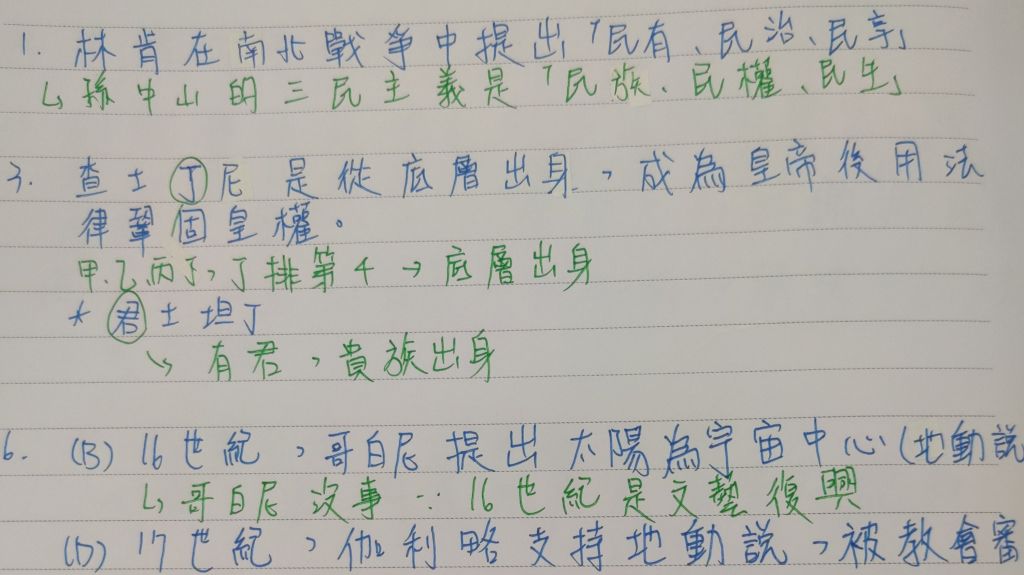 1. 林肯在南北戰爭中提出「民有、民治、民享」
↳ 孫中山的三民主義是「民族、民權、民生」
3. 查士丁尼是從底層出身,成為皇帝後用法
律鞏個皇權。
甲乙丙丁,丁排第4 → 底層出身
* 君士坦丁
↳ 有君,貴族出身
6. (B) 16世紀,哥白尼提出太陽為宇宙中心(地動說
↳ 哥白尼沒事 ∵ 16世紀是文藝復興
(D) 17世紀,伽利略支持地動說,被教會審